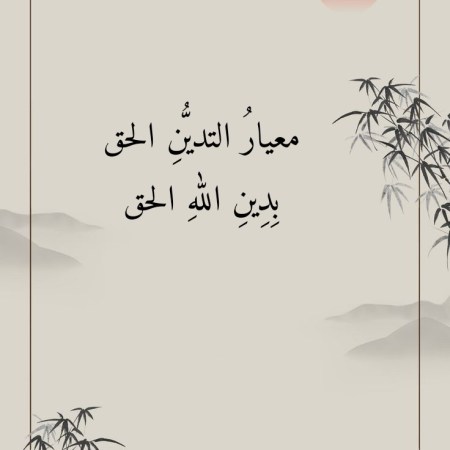 معيارُ التديُّنِ الحق
بِدِينِ اللهِ الحق